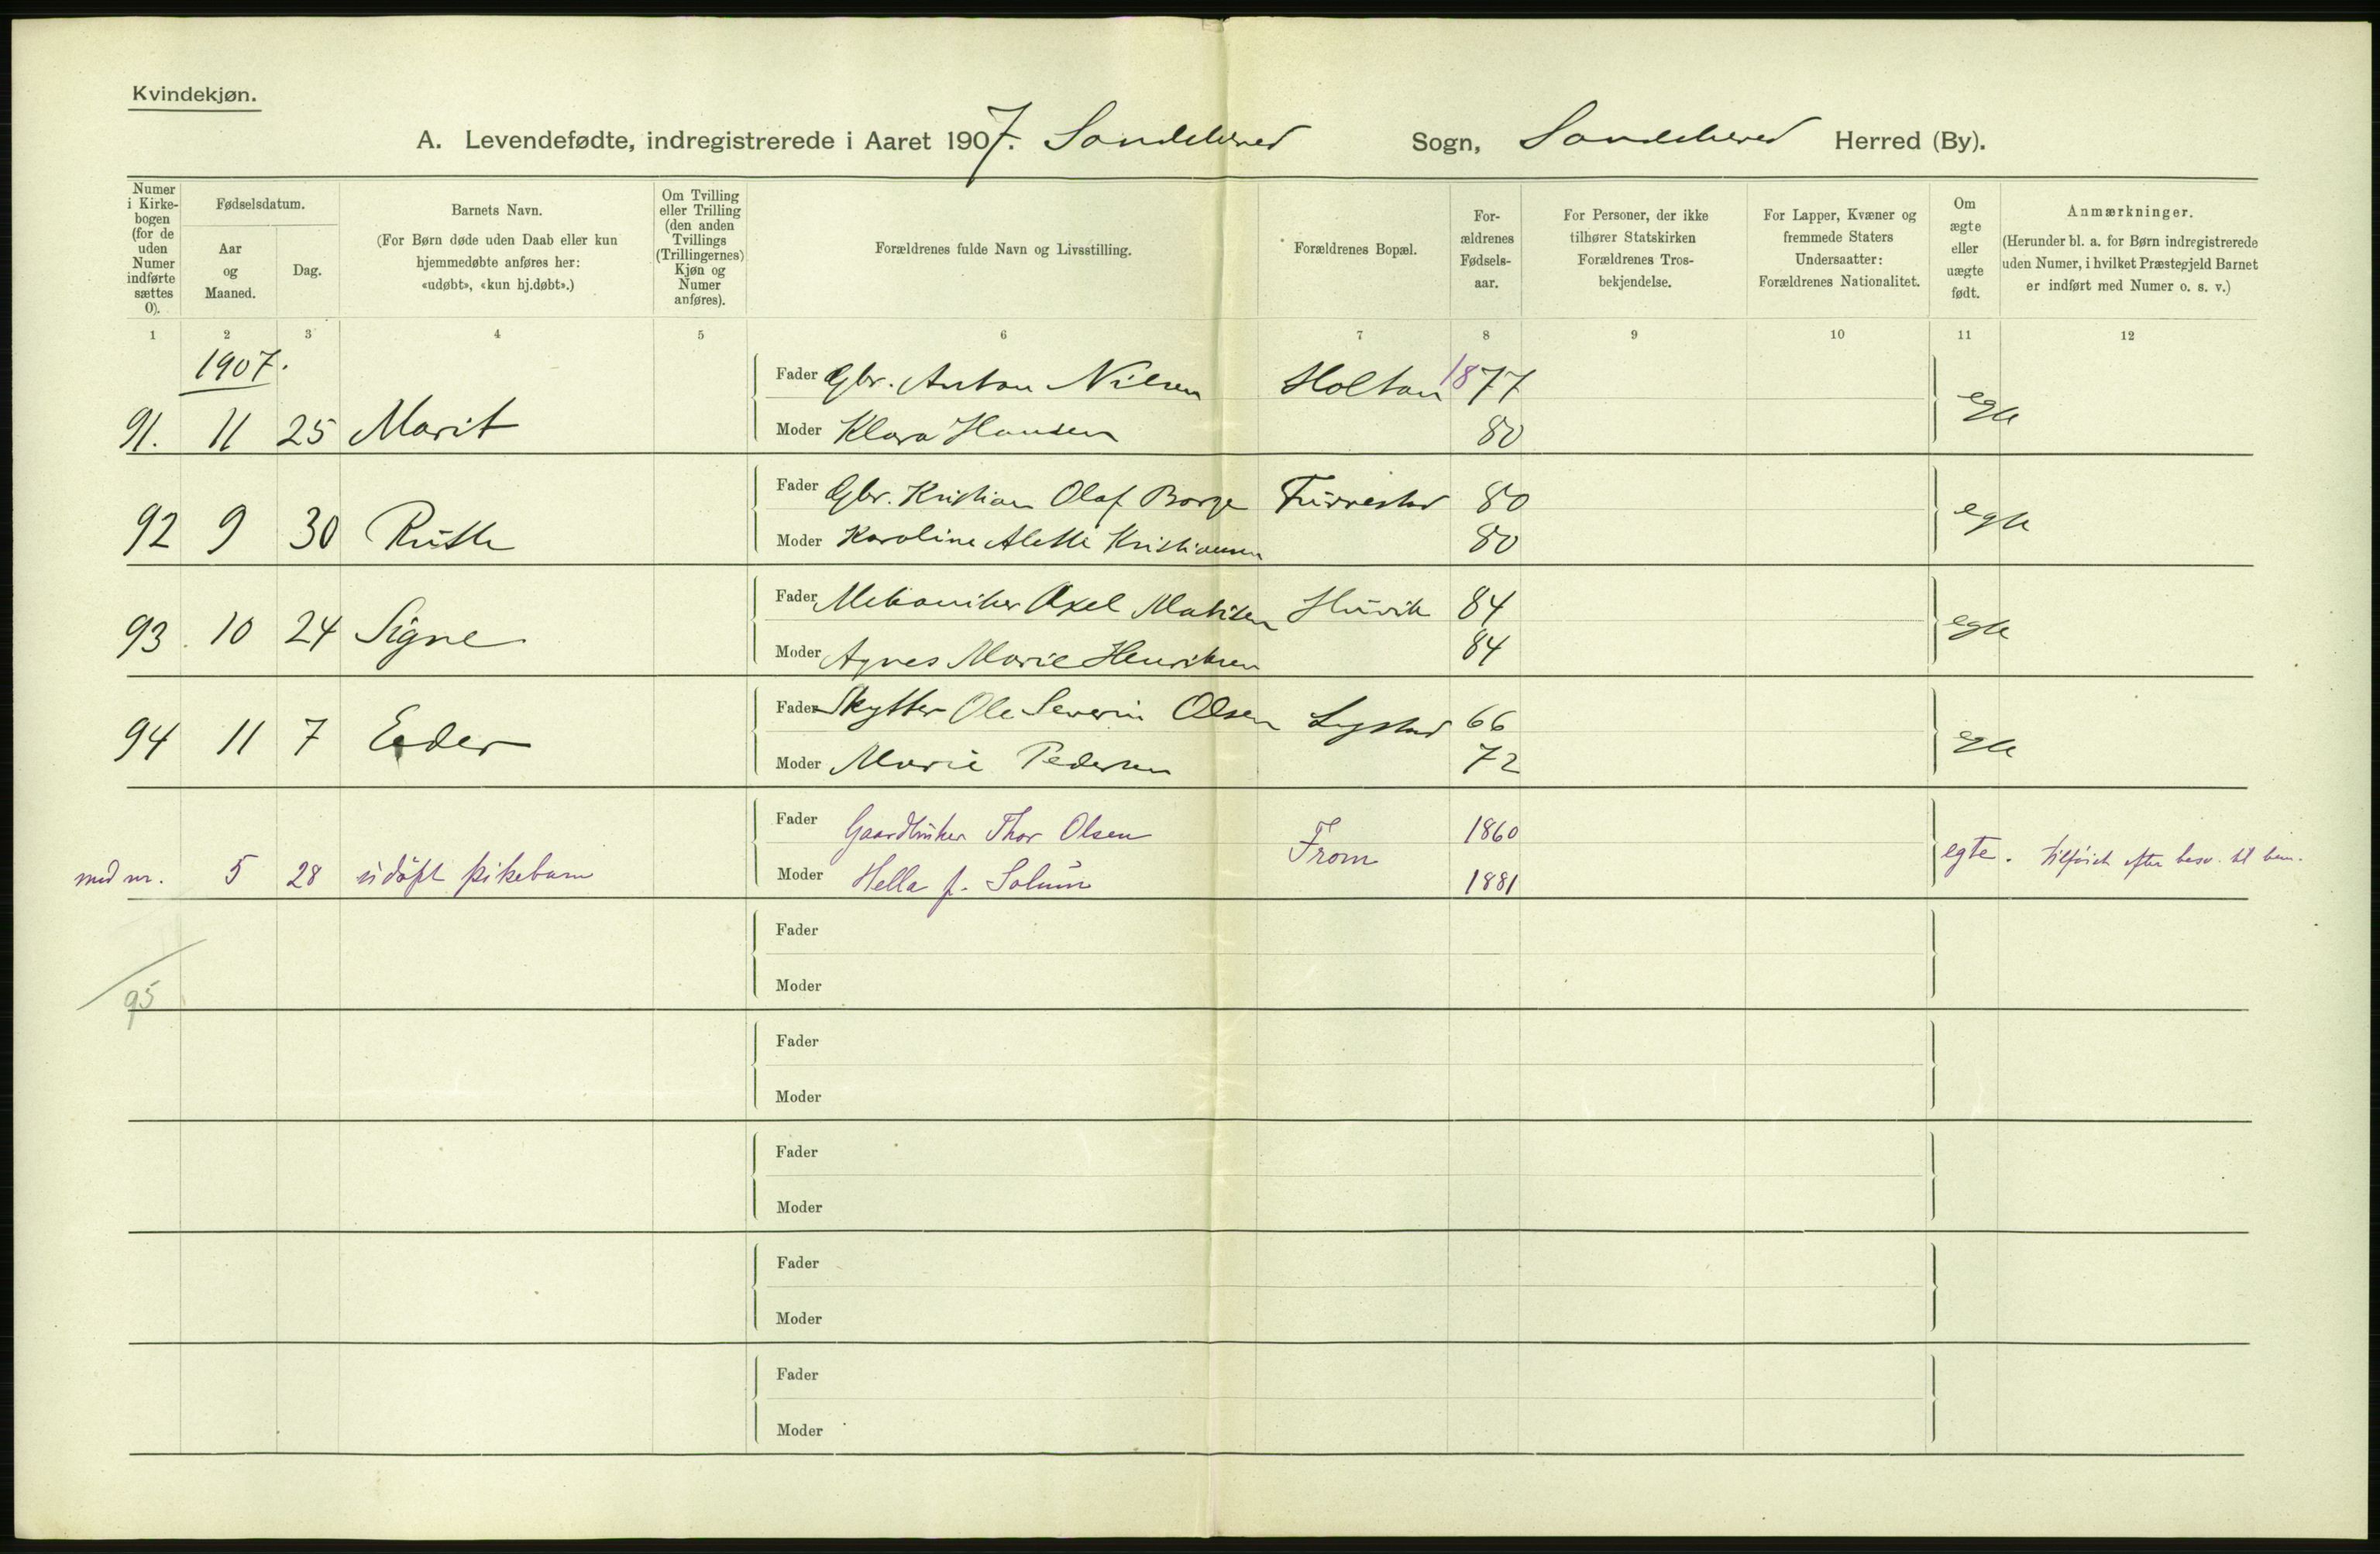 Kvindekjøn.
A. Levendefødte, indregistrerede i Aaret 1907. Sandeherred Sogn, Sandeherred Herred (By).
Numer i Kirkebogen (for de uden Numer indførte sættes 0).
Fødselsdatum.
Aar og Maaned.
Dag.
Barnets Navn.
(For Børn døde uden Daab eller kun hjemmedøbte anføres her: «udøbt», «kun hj.døbt».)
Om Tvilling eller Trilling (den anden Tvillings (Trillingernes) Kjøn og Numer anføres).
Forældrenes fulde Navn og Livsstilling.
Forældrenes Bopæl.
For-
ældrenes
Fødsels-
aar.
For Personer, der ikke
tilhører Statskirken
Forældrenes Tros-
bekjendelse.
For Lapper, Kvæner og
fremmede Staters
Undersaatter:
Forældrenes Nationalitet.
Om
ægte
eller
uægte
født.
Anmærkninger.
(Herunder bl. a. for Børn indregistrerede
uden Numer, i hvilket Præstegjeld Barnet
er indført med Numer o. s. v.)
1 2 3 4 5 6 7 8 9 10 11 12
1907.
Fader Gbr. Anton Nilsen Holtan 1877
91. 11 25 Marit Moder Klara Hansen 80 egte
Fader Gbr. Kristian Olaf Borge Furrestad 80
92 9 30 Ruth Moder Karoline Alette Kristiansen 80 egte
Fader Mekaniker Axel Mathisen Huvik 84
93. 10 24 Signe Moder Agnes Marie Henriksen 84 egte
Fader Skytter Ole Severin Olsen 66
94 11 7 Moder Marie Pedersen 72 egte
Fader Gaardbruker Thor Olsen From 1860
5 28 udøpt pikebarn Moder Hella f. Solum 1881 egte. tilføiet efter
Fader
Moder
95
Fader
Moder
Fader
Moder
Fader
Moder
Fader
Moder